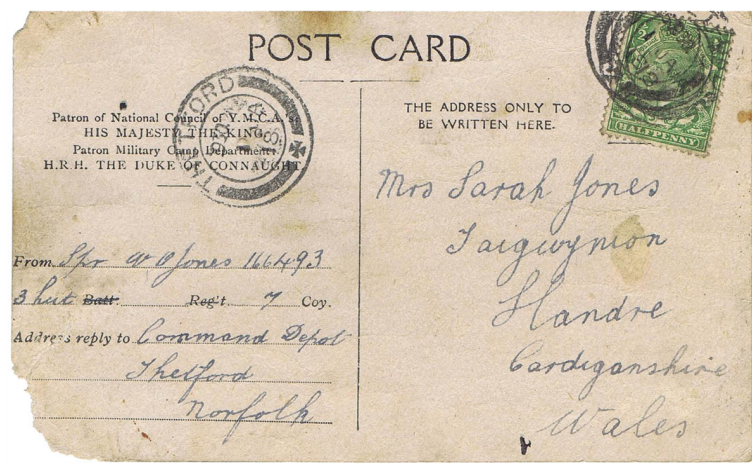 POST CARD
Patron of National Council of Y.M.C.A.'s
HIS MAJESTY THE KING.
Patron Military Camp Department:
H.R.H. THE DUKE OF CONNAUGHT
THETFORD
THE ADDRESS ONLY TO
BE WRITTEN HERE.
HALFPENNY
From Spr W O Jones 166493
3 hut Batt. Reg't. 7 Coy.
Address reply to Command Depot
Thetford
Norfolk
Mrs Sarah Jones
Taigwynion
Llandre
Cardiganshire
Wales